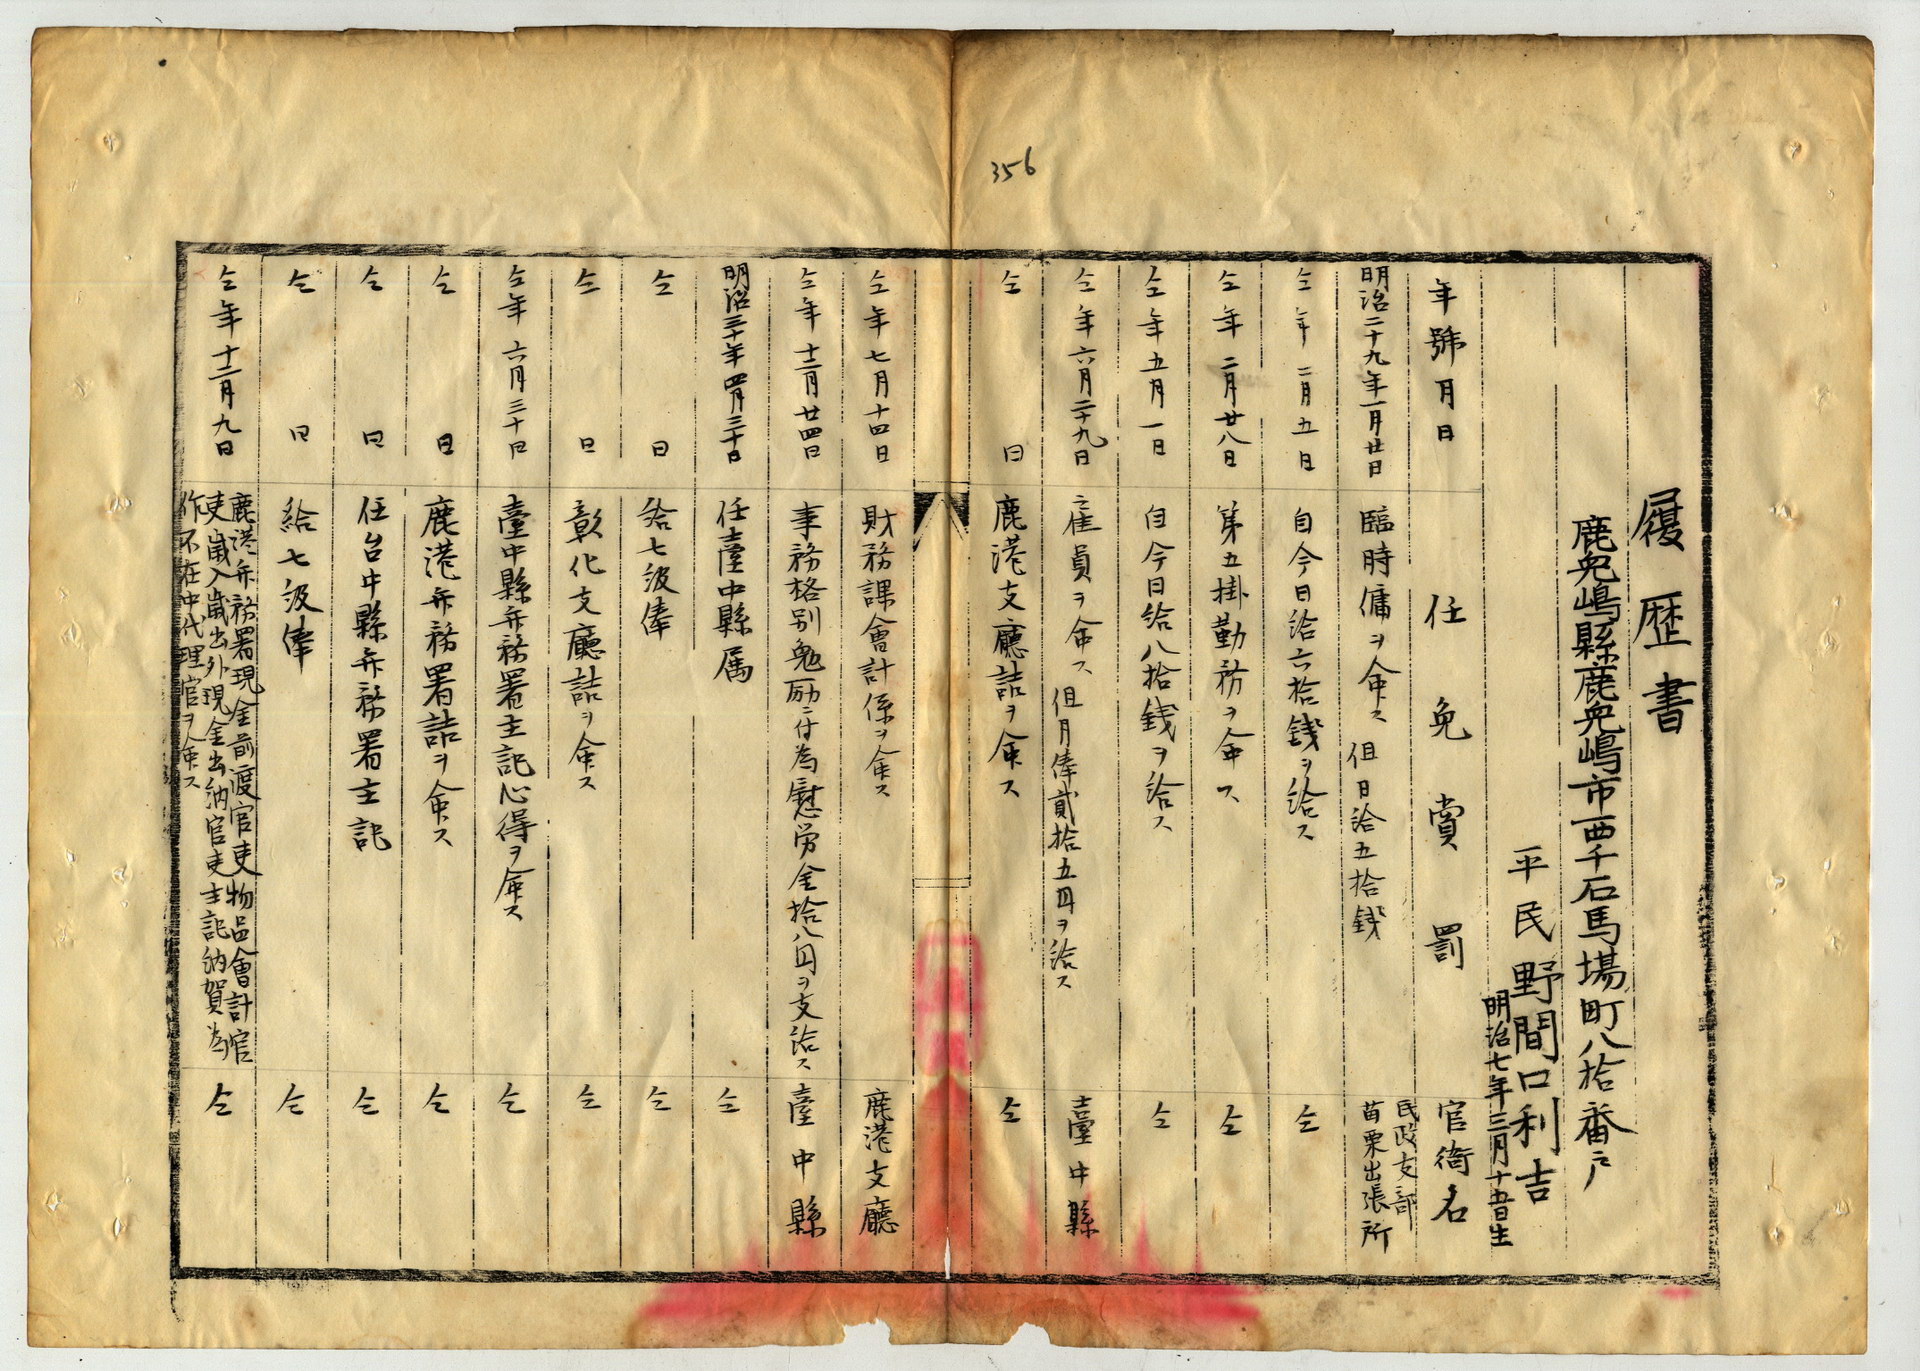 356
履歴書
鹿児嶋縣鹿児嶋市西千石馬場町八拾番戸
平民 野間口利吉
明治七年三月十五日生
年號月日 任免賞罰 官衙名
明治二十九年一月廿日 臨時傭ヲ命ス 但日給五拾錢 民政支部苗栗出張所
仝年二月五日 自今日給六拾錢ヲ給ス 仝
仝年二月廿八日 第五掛勤務ヲ命ス 仝
仝年五月一日 自今日給八拾錢ヲ給ス 仝
仝年六月二十九日 雇員ヲ命ス 但月俸貳拾五円ヲ給ス 臺中縣
仝日 鹿港支廳詰ヲ命ス 仝
仝年七月十四日 財務課會計係ヲ命ス 鹿港支廳
仝年十二月廿四日 事務格別勉励ニ付為慰労金拾八円ヲ支給ス 臺中縣
明治三十年四月三十日 任臺中縣属 仝
仝日 給七級俸 仝
仝日 彰化支廳詰ヲ命ス 仝
仝年六月三十日 臺中縣弁務署主記心得ヲ命ス 仝
仝日 鹿港弁務署詰ヲ命ス 仝
仝日 任台中縣弁務署主記 仝
仝日 給七級俸 仝
仝年十二月九日 鹿港弁務署現金前渡官吏物品會計官
吏歳入歳出外現金出納官吏主記納賀為
作不在中代理官ヲ命ス 仝